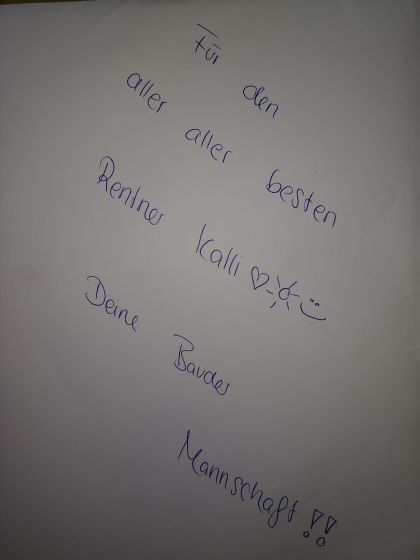 Für den
aller aller besten
Rentner Kalli ♡☀☺
Deine Bauder
Mannschaft!!